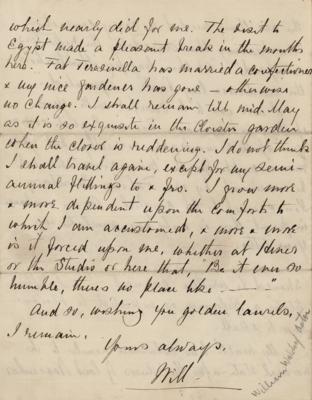 which nearly did for me. The visit to
Egypt made a pleasant break in the months
here. Fat Teresinella has married a confectioner
& my nice gardener has gone — otherwise
no change. I shall remain till mid. May
as it is so exquisite in the Cloister garden
when the clover is reddening. I do not think
I shall travel again, except for my semi-
annual flittings to & fro. I grow more
& more dependent upon the comforts to
which I am accustomed, & more & more
is it forced upon me, whether at
or the Studio or here that, "Be it ever so
humble, theres no place like — — — "
And so, wishing you golden laurels,
I remain,
Yours always,
Will
William